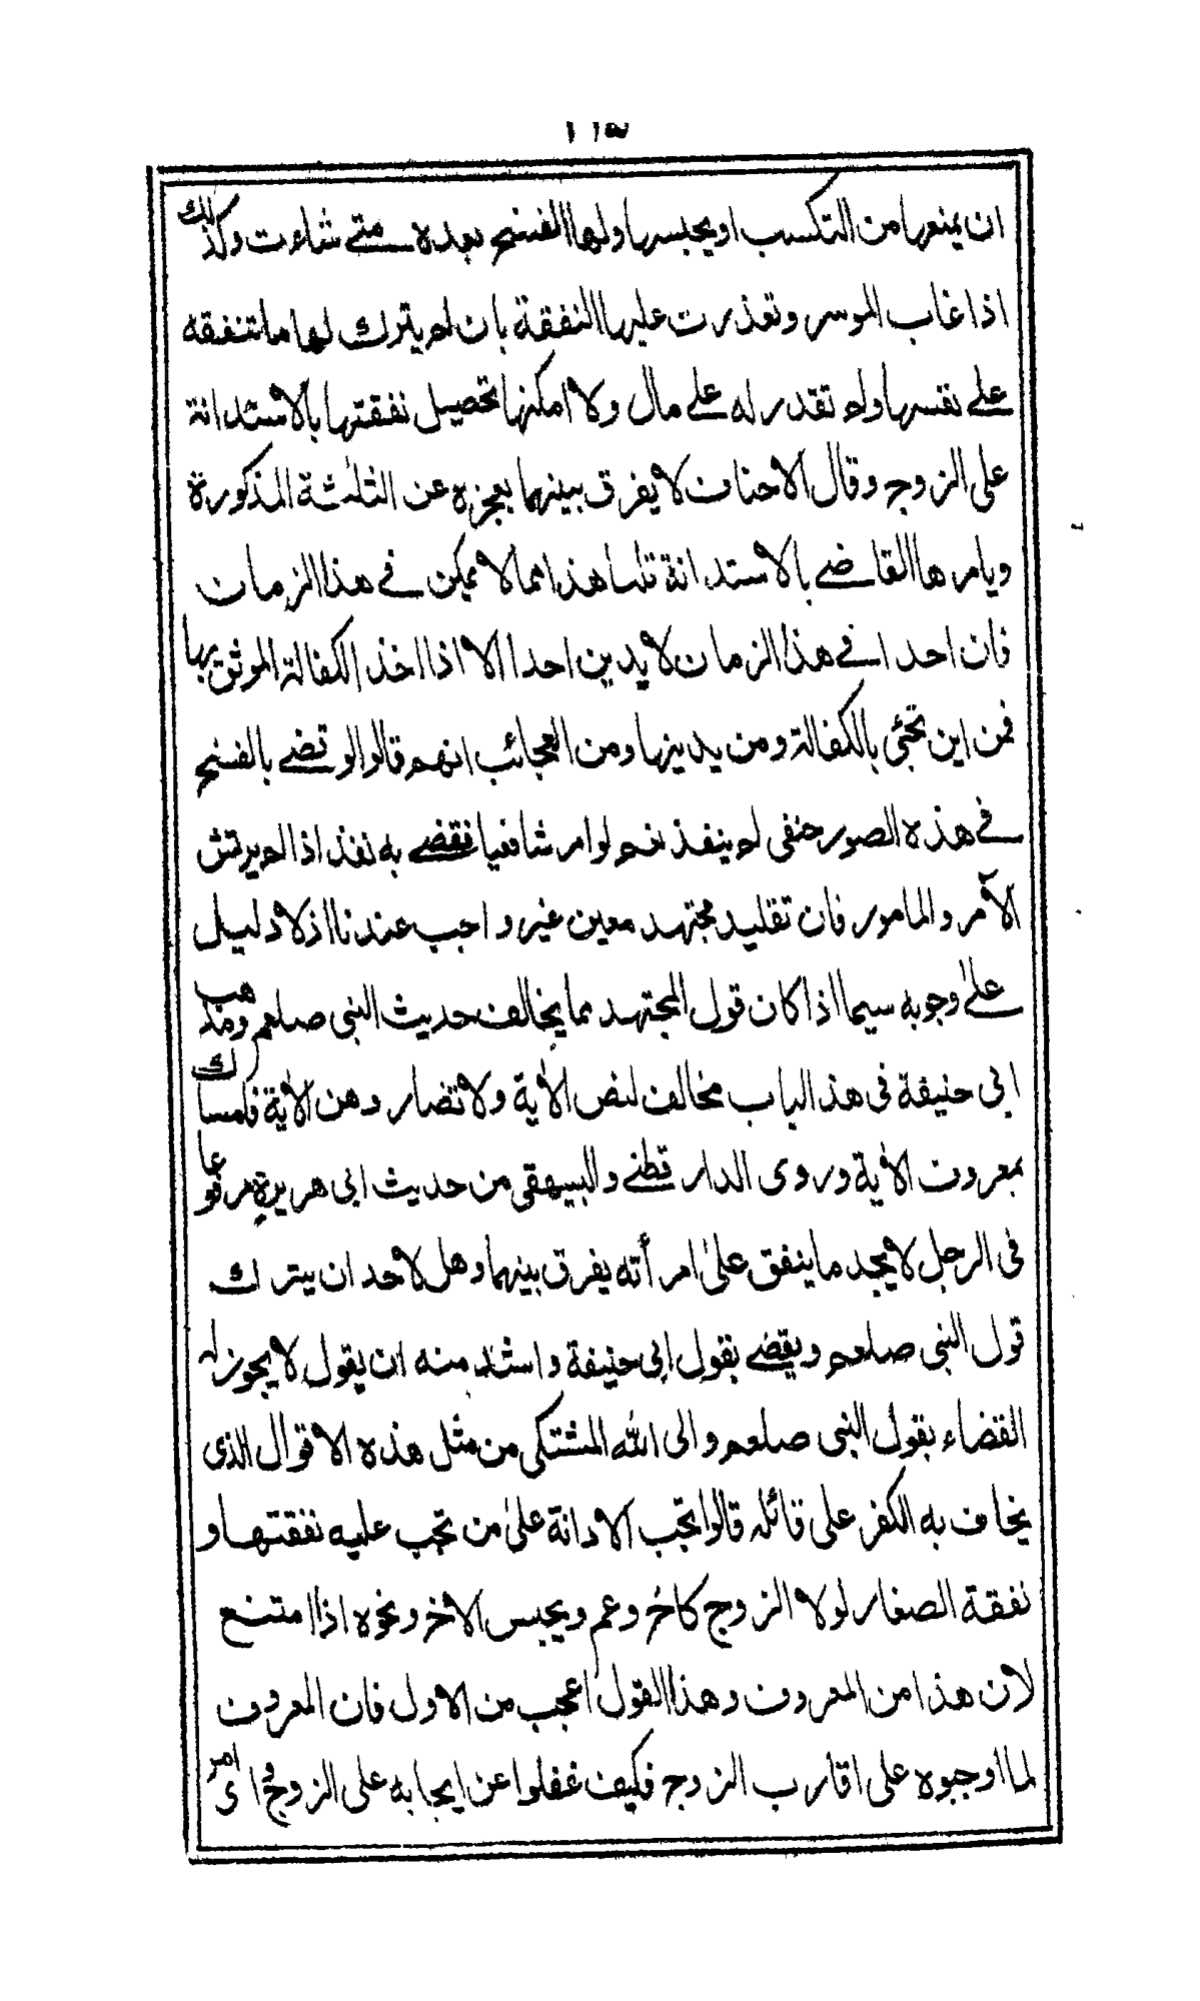 ١١٥
ان يمنعها من التكسب او يحبسها ولها الفسخ بعده متے شاءت وكذلك
اذا غاب الموسر وتعذرت عليها النفقة بان لم يترك لها ما تنفقه
علے نفسها ولم تقدر له علے مال ولا امكنها تحصيل نفقتها بالاستدانة
على الزوج وقال الاحناف لا يفرق بينهما بعجزه عن الثلٰثة المذكورة
ويامرها القاضے بالاستدانة قلنا هذا مما لا يمكن فے هذا الزمان
فان احدا فے هذا الزمان لا يدين احدا الا اذا اخذ الكفالة الموثوق بها
فمن اين تجئى بالكفالة ومن يدينها ومن العجائب انهم قالوا لو قضے بالفسخ
فے هذه الصور حنفى لم ينفذ نعم لو امر شافعيا فقضے به نفذ اذا لم يرتش
الآمر والمامور فان تقليد مجتهد معين غير واجب عندنا اذ لا دليل
علےٰ وجوبه سيما اذا كان قول المجتهد مما يخالف حديث النبى صلعم ومذهب
ابى حنيفة فى هذا الباب مخالف لنص الاٰية ولا تضار وهن الاٰية فامساك
بمعروف الاٰية وروى الدار قطنے والبيهقى من حديث ابى هريرة مرفوعا
فى الرجل لا يجد ما ينفق علىٰ امرأته يفرق بينهما وهل لاحد ان يترك
قول النبى صلعم ويقضے بقول ابى حنيفة واشد منه ان يقول لا يجوز له
القضاء بقول النبى صلعم والى الله المشتكى من مثل هذه الاقوال الذى
يخاف به الكفر على قائله قالوا تجب الادانة علىٰ من تجب عليه نفقتها و
نفقة الصغار لولا الزوج كاخ وعم ويحبس الاخ ونحوه اذا امتنع
لان هذا من المعروف وهذا القول اعجب من الاول فان المعروف
لما اوجبوه على اقارب الزوج فكيف غفلوا عن ايجابه على الزوج واى امر